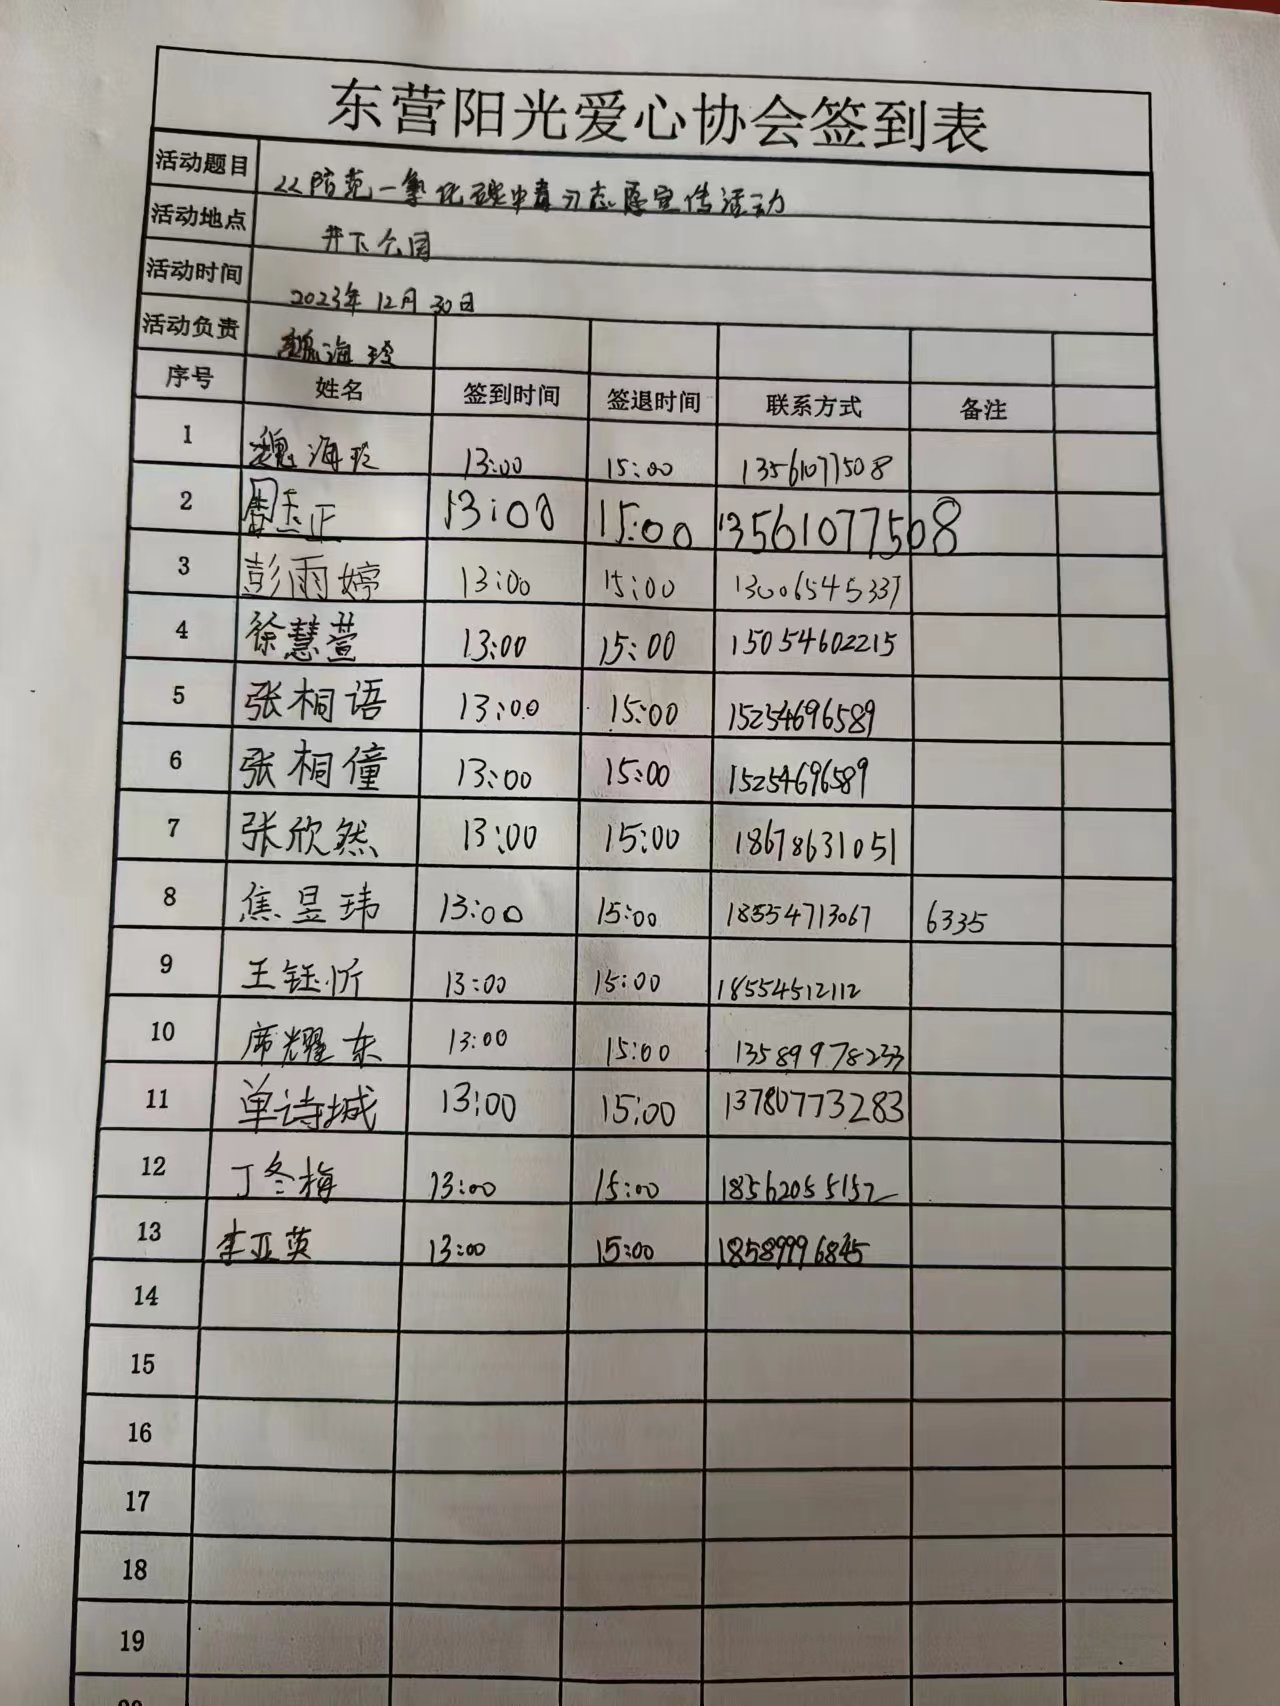 东营阳光爱心协会签到表
活动题目 《防范一氧化碳中毒》志愿宣传活动
活动地点 井下公园
活动时间 2023年12月30日
活动负责 魏海玲
序号 姓名 签到时间 签退时间 联系方式 备注
1 魏海玲 13:00 15:00 13561077508
2 13:00 15:00 13561077508
3 彭雨婷 13:00 15:00 13006545337
4 徐慧萱 13:00 15:00 15054602215
5 张桐语 13:00 15:00 15254696589
6 张桐僮 13:00 15:00 15254696589
7 张欣然 13:00 15:00 18678631051
8 焦昱玮 13:00 15:00 18554713067 6335
9 王钰忻 13:00 15:00 18554512112
10 席耀东 13:00 15:00 13589978233
11 单诗城 13:00 15:00 13780773283
12 丁冬梅 13:00 15:00 18562055152
13 李亚英 13:00 15:00 18589996845
14
15
16
17
18
19